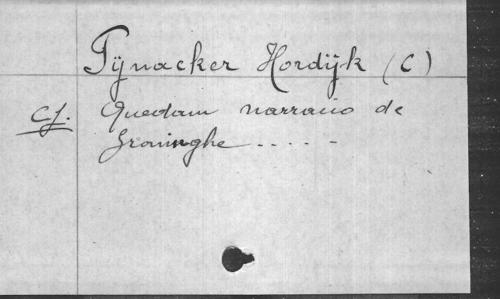 Pijnacker Hordijk (C)
cf. Quedam narracio de
Groninghe .....